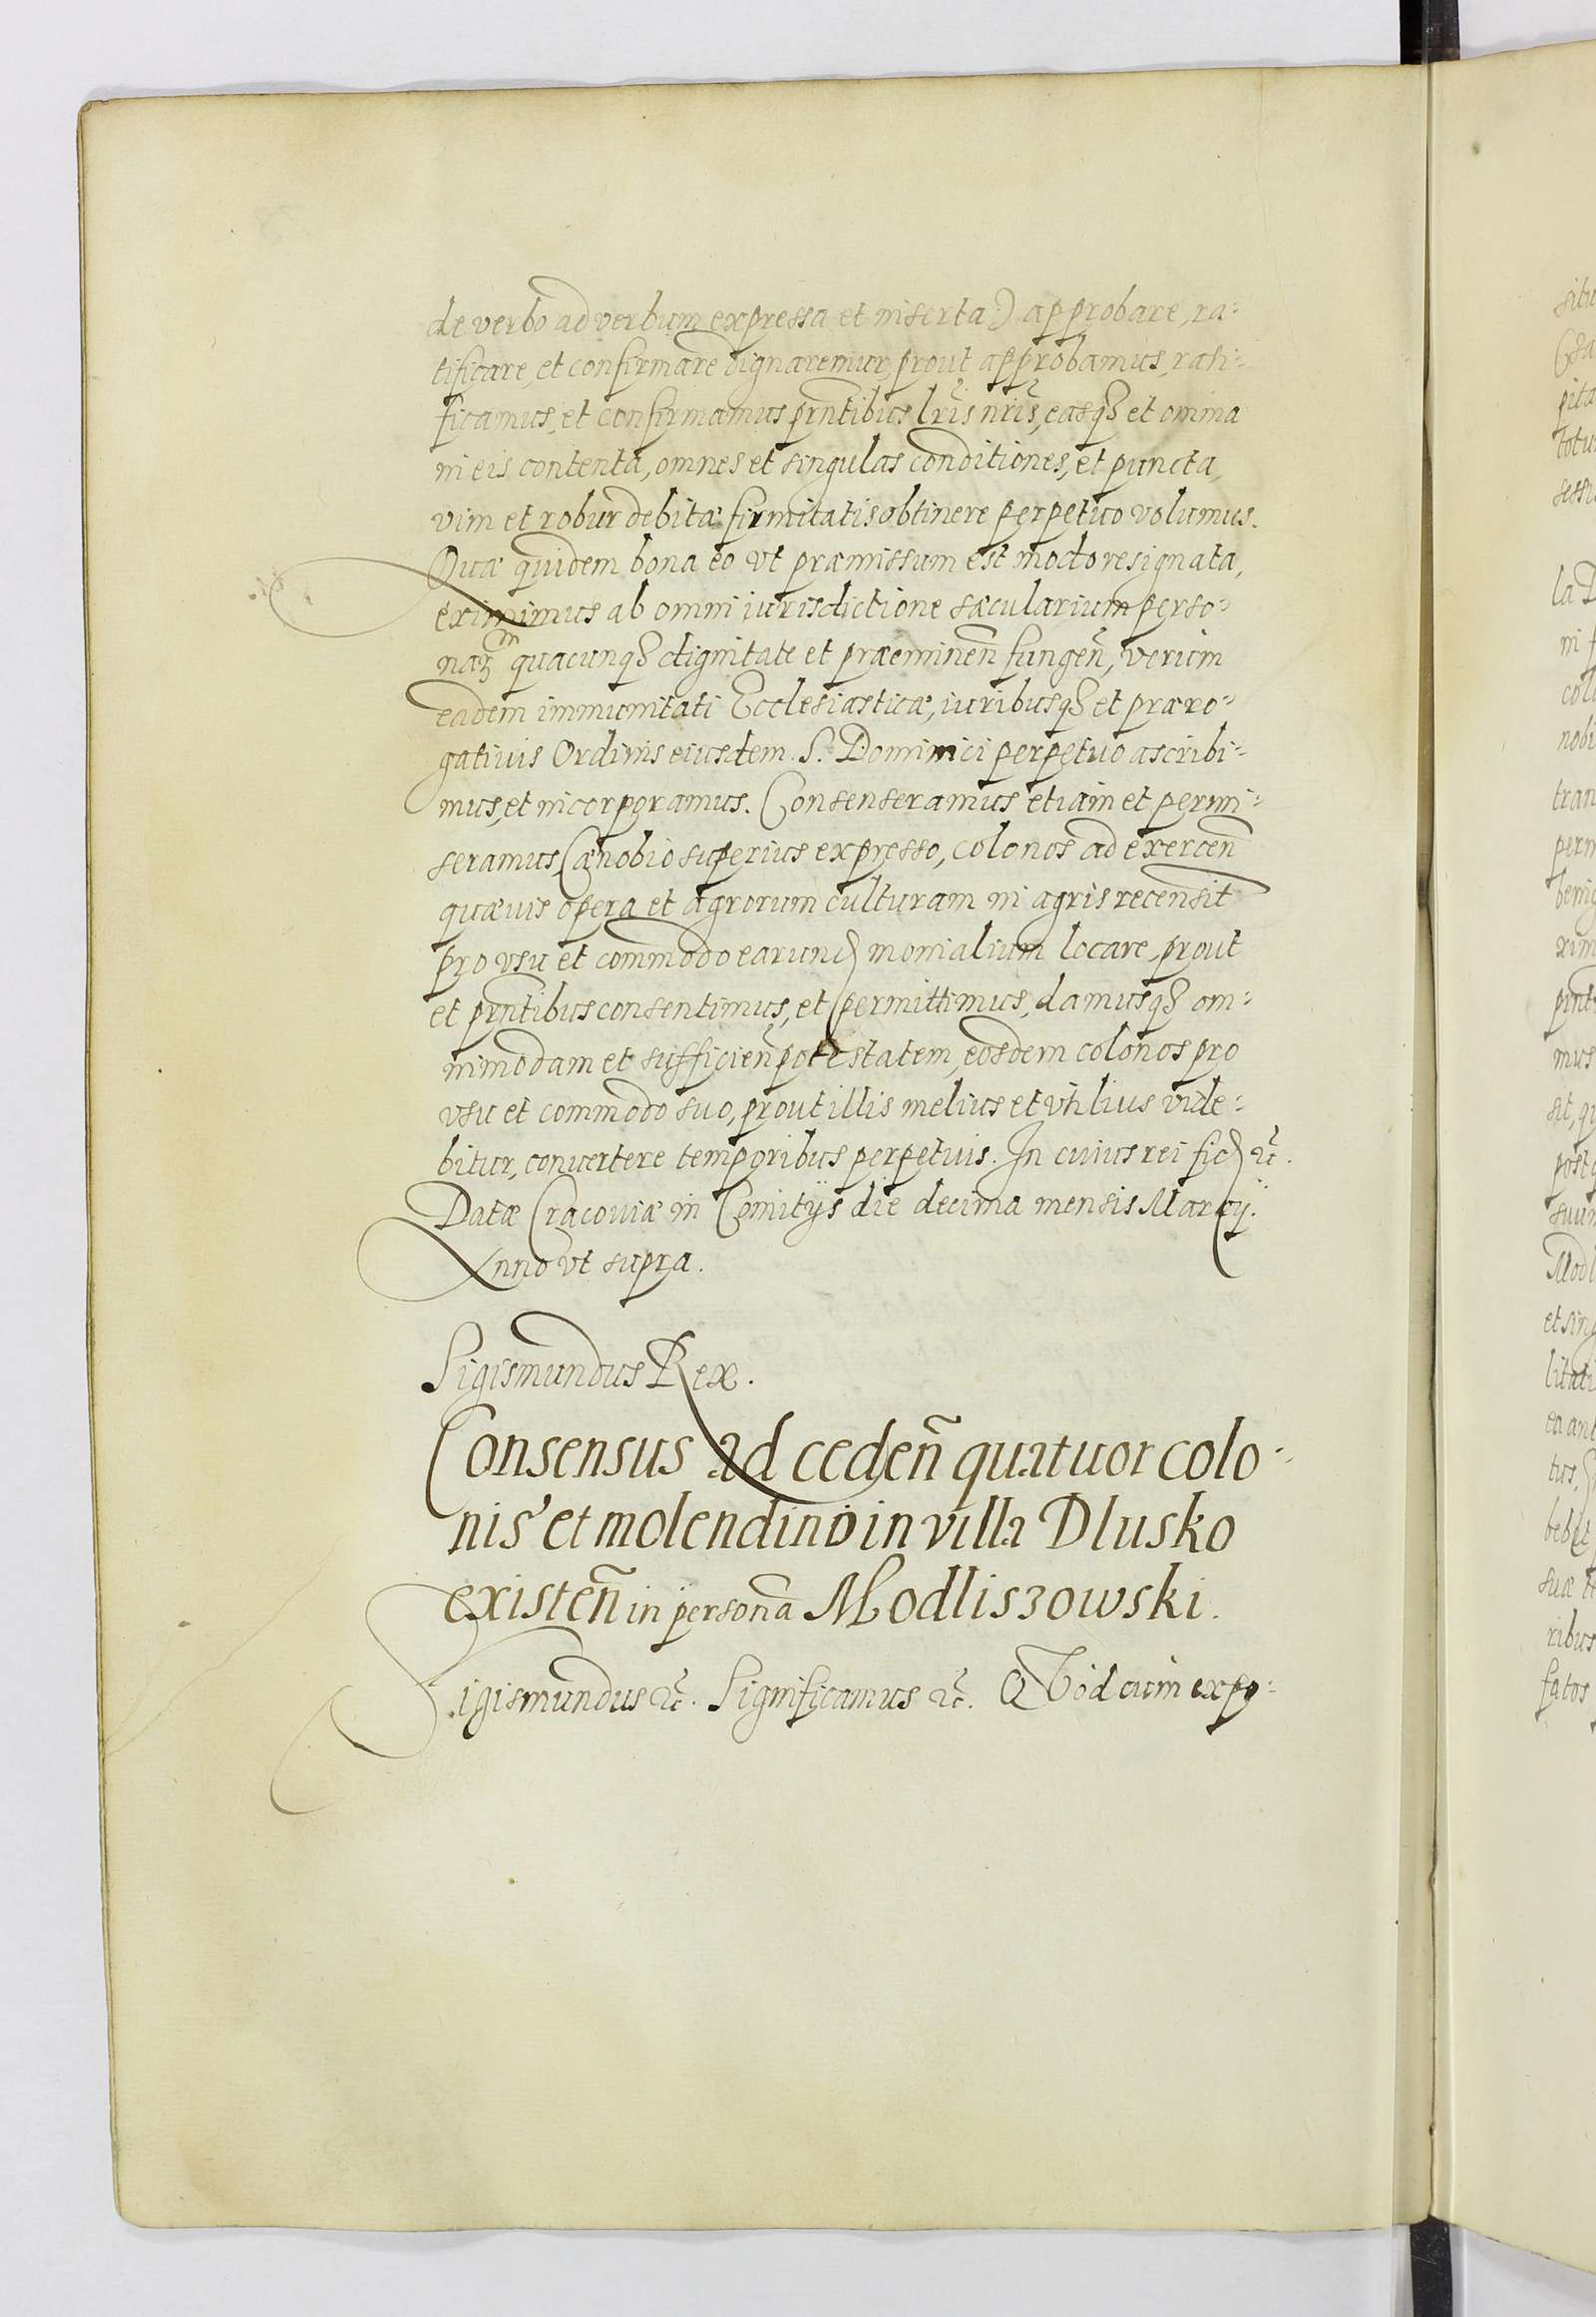 de verbo ad verbum expressa et inserta:) approbare, ra=
tificare, et confirmare dignaremur, prout approbamus, rati=
ficamus, et confirmamus prntibus lris nris, easqȝ et omnia
in eis contenta, omnes et singulas conditiones, et puncta,
vim et robur debitæ firmitatis obtinere perpetuo volumus.
Quæ quidem bona eo vt præmissum est modo resignata,
eximimus ab omni iurisdictione sæcularium perso=
naꝝ in quacunqȝ dignitate et præeminen̄ fungen̄, verum
eadem immunitati Ecclesiasticæ, iuribusqȝ et præro=
gatiuis Ordinis eiusdem S. Dominici perpetuo ascribi=
mus, et incorporamus. Consenseramus etiam et permi=
seramus, Cænobio superius expresso, colonos ad exercen̄
quæuis opera et agrorum culturam in agris recensit
pro vsu et commodo earund monialium locare, prout
et prntibus consentimus, et permittimus, damusqȝ om=
nimodam et sufficien̄ potestatem, eosdem colonos pro
vsu et commodo suo, prout illis melius et vtilius vide=
bitur, conuertere temporibus perpetuis. In cuius rei fid ꝛc.
Datæ Cracouiæ in Comitijs die decima mensis Marcij.
Anno vt supra.
Sigismundus Rex.
Consensus ad ceden̄ quatuor colo=
nis et molendino in villa Dlusko
existen̄ in persona Modliszowski.
Sigismundus ꝛc. Significamus ꝛc. Quod cum expo=